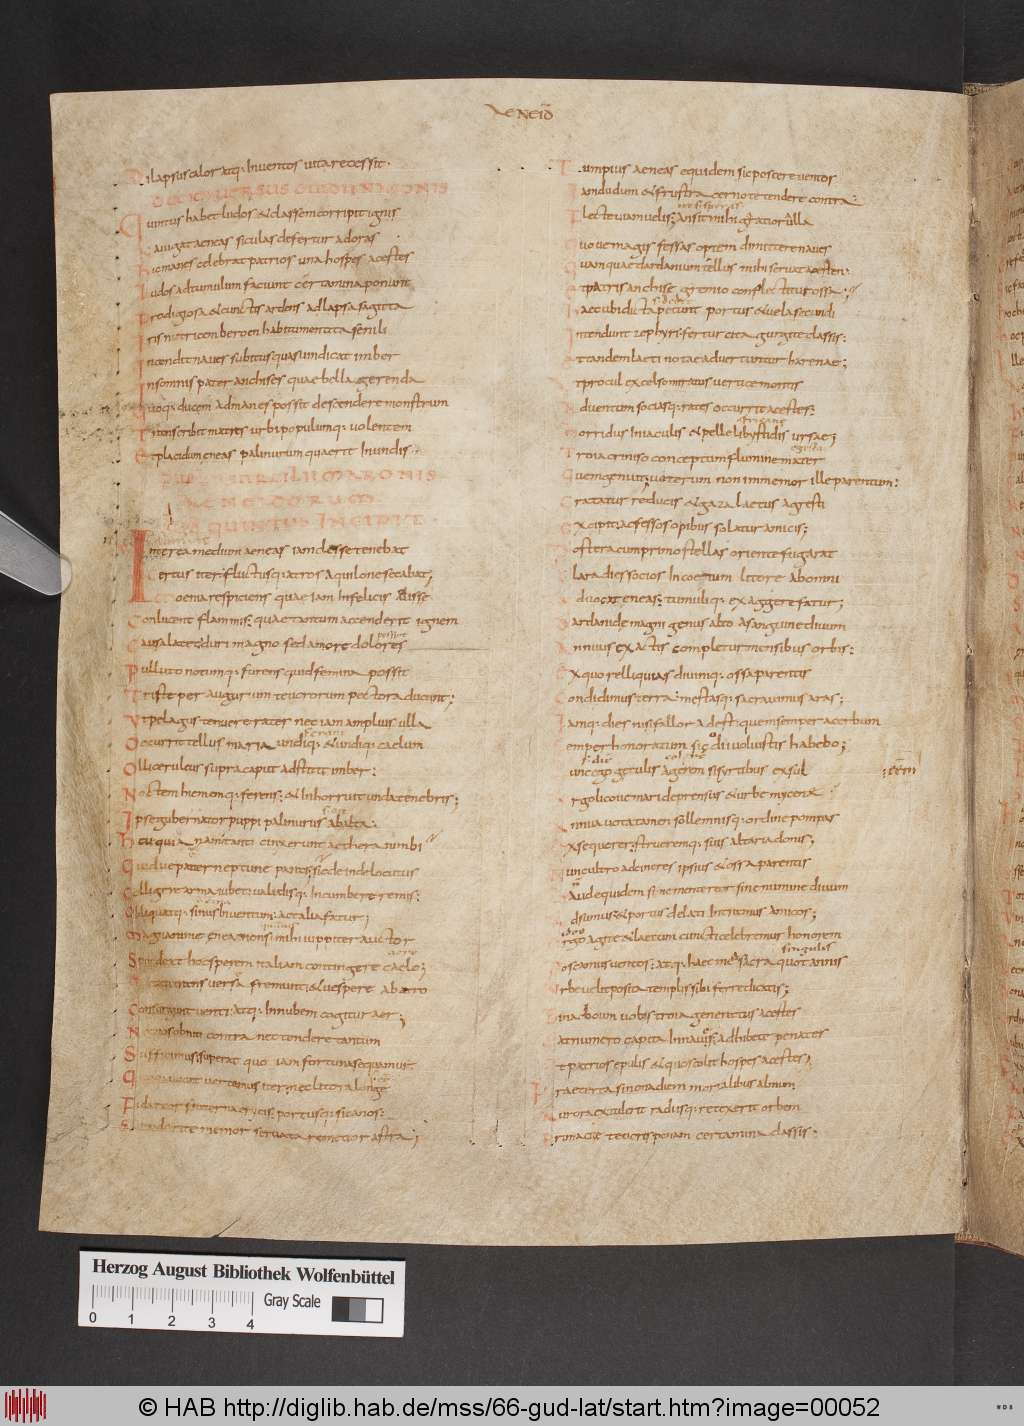 AeNeiD
Dilapsus calor atq; in ventos vita recessit.
Quintus habet ludos & classem corripit ignis
Navigat aeneas siculas defertur ad oras
manes celebrat patrios una hospes acestes
Ludos ad tumulum faciunt certamina ponunt
Prodigiosa & cunctis ardens adlapsa sagitta
Iris
Incendit naves subitus quas vindicat imber
Insomnis pater anchises quae bella gerenda
Quoq; ducem ad manes possit descendere monstrum
Transcribit matres urbi populumq; volentem
Et placidum eneas palinurum quaerit in undis
QUINTUS INCIPIT
Interea medium aeneas iam classe tenebat
Certus iter; fluctusq; atros aquilone secabat;
Moenia respiciens quae iam infelicis elisse
Conlucent flammis; quae tantum accenderit ignem
Causa latet; duri magno sed amore dolores
Polluto notumq; furens quid femina possit
Triste per augurium teucrorum pectora ducunt;
Ut pelagus tenuere rates nec iam amplius ulla
Occurrit tellus maria undiq; & undiq; caelum
Olli ceruleus supra caput adstitit imber;
Noctem hiememq; ferens; & inhorruit unda tenebris;
Ipse gubernator puppi palinurus ab alta;
Heu quianam tanti cinxerunt aethera nimbi
Quidve pater neptune paras; sic deinde locutus
Colligere arma iubet; validisq; incumbere remis;
Obliquatq; sinus in ventum; ac talia fatur;
Magnanime enea non si mihi iuppiter auctor
Spondeat hoc sperem italiam contingere caelo;
transversa fremunt; & vespere ab atro
Consurgunt venti; atq; in nubem cogitur aer;
Nec nos obniti contra nec tendere tantum
Sufficimus; superat quo iam fortuna sequamur
Quoq; vocat vertamus iter; nec litora longe
Fida reor fraterna erycis; portusq; sicanos;
Si modo rite memor servata remetior astra;
Tum pius aeneas equidem sic poscere ventos
Iamdudum & frustra cerno te tendere contra;
Flecte viam velis; an sit mihi gratior ulla
Quove magis fessas optem dimittere naves
Quam quae dardanium tellus mihi servat acesten;
Et patris anchise gremio complectitur ossa;
Haec ubi dicta petunt portus & vela secundi
Intendunt zephyri; fertur cita gurgite classis;
Et tandem laeti notae advertuntur harenae;
At procul excelso miratus vertice montis
Adventum sociasq; rates occurrit acestes;
Horridus in iaculis & pelle libystidis ursae;
Troia criniso conceptum flumine mater
Quem genuit; veterum non immemor ille parentum;
Gratatur reduces & gaza laetus agresti
Excipit; ac fessos opibus solatur amicis;
Postera cum primo stellas oriente fugarat
Clara dies socios in coetum litore ab omni
Advocat eneas; tumuliq; ex aggere fatur;
Dardanide magni genus alto a sanguine divum
Annuus exactis completur mensibus orbis;
Ex quo relliquias divinq; ossa parentis
Condidimus terra; mestasq; sacravimus aras;
Iamq; dies nisi fallor adest; quem semper acerbum
semper honoratum sic dii voluistis habebo;
Hunc ego getulis agerem si syrtibus exsul
Argolicove mari deprensus & urbe mycene
Annua vota tamen sollemnisq; ordine pompas
Exsequerer; strueremq; suis altaria donis;
Nunc ultro ad cineres ipsius & ossa parentis
Haud equidem sine mente reor sine numine divum
Adsumus; & portus delati intramus amicos;
Ergo agite & laetum cuncti celebremus honorem
Poscamus ventos; atq; haec me sacra quotannis
Urbe velit posita templis sibi ferre dicatis;
Bina boum vobis troia generatus acestes
Dat numero capita in naves; adhibete penates
Et patrios epulis & quos colit hospes acestes;
Praeterea si nona diem mortalibus almum;
Aurora extulerit radiisq; retexerit orbem
Prima citae teucris ponam certamina classis;
Herzog August Bibliothek Wolfenbüttel
Gray Scale
0 1 2 3 4
© HAB http://diglib.hab.de/mss/66-gud-lat/start.htm?image=00052